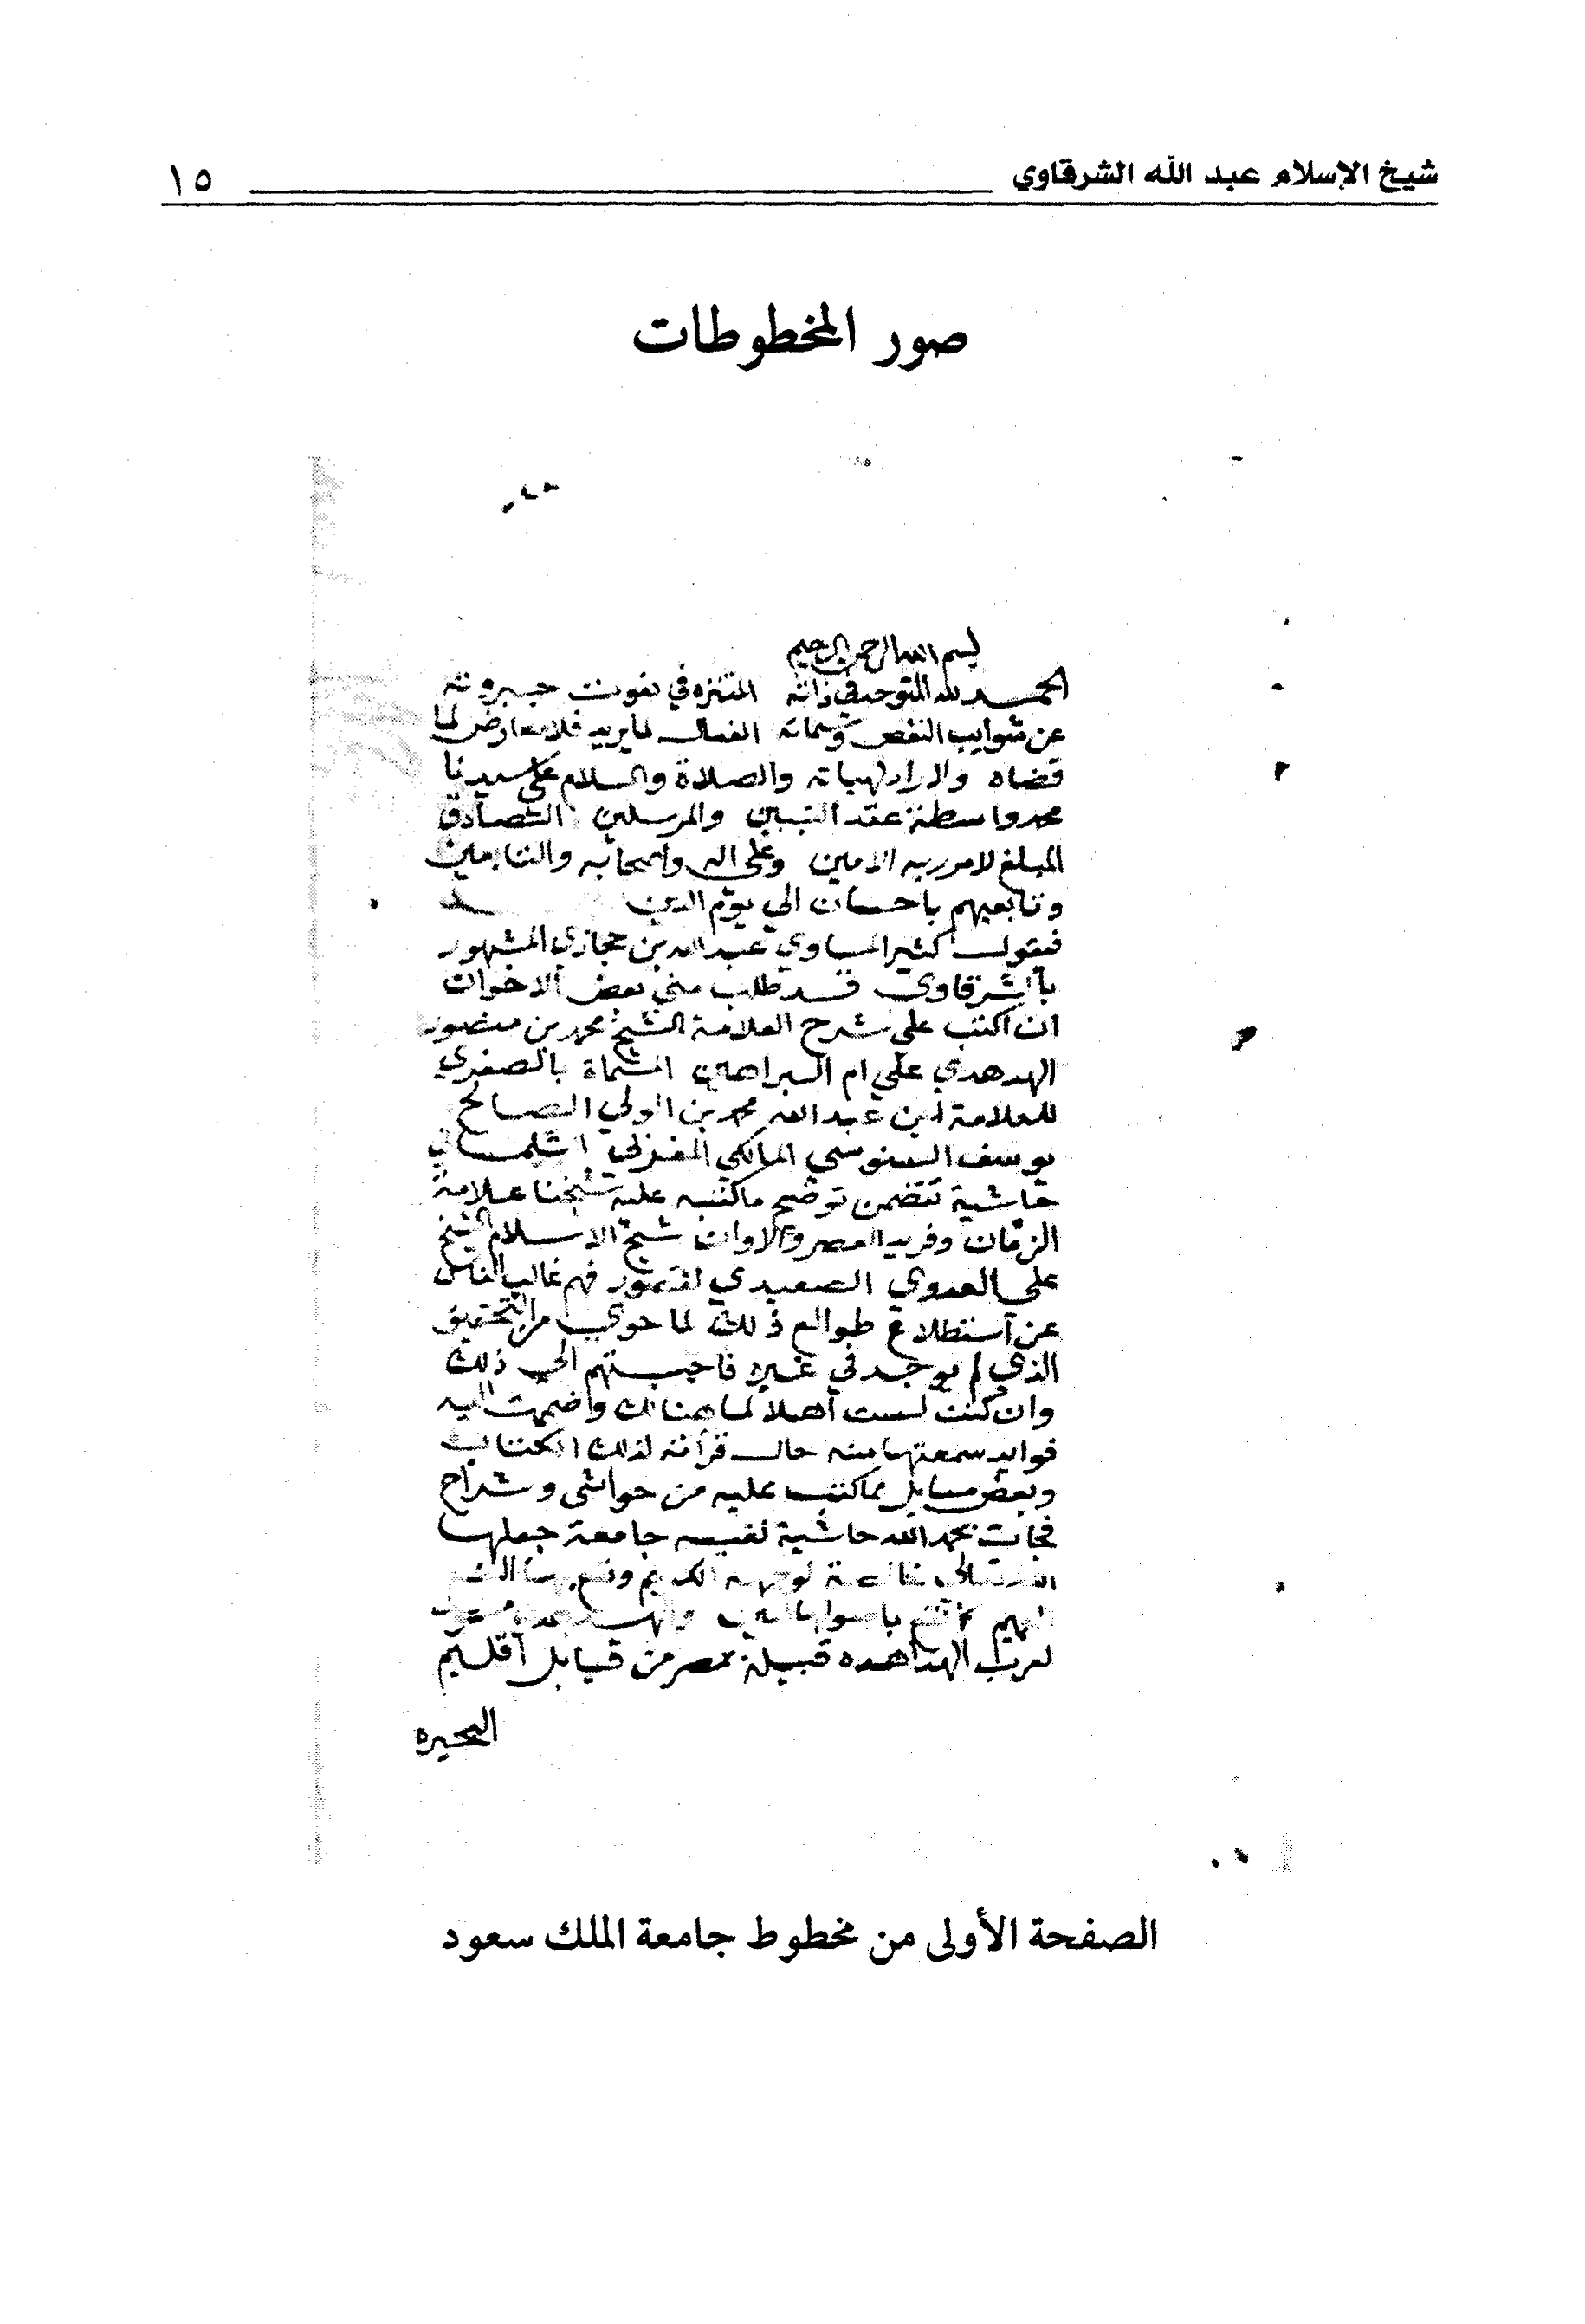 شيخ الإسلام عبد الله الشرقاوي ١٥
صور المخطوطات
بسم الله الرحمن الرحيم
الحمد لله المتوحد في ذاته المتنزه في نعوت جبروته
عن شوايب النقص وسماته الفعال لما يريد فلا معارض لما
قضاه ولا راد لهباته والصلاة والسلام على سيدنا
محمد واسطة عقد النبيين والمرسلين الصادق
المبلغ لامر ربه الامين وعلى اله واصحابه والتابعين
وتابعيهم باحسان الي يوم الدين
فيقول كثير المساوي عبد الله بن حجازي المشهور
بالشرقاوي قد طلب مني بعض الاخوان
ان اكتب علي شرح العلامة الشيخ محمد بن منصور
الهدهدي علي ام البراهين المسماة بالصغري
للعلامة ابن عبد الله محمد بن الولي الصالح
يوسف السنوسي المالكي المغربي التلمساني
حاشية تتضمن توضيح ما كتبه عليه شيخنا علامة
الزمان وفريد العصر والاوان شيخ الاسلام الشيخ
علي العدوي الصعيدي لقصور فهم غالب الناس
عن استطلاع طوالع ذلك لما حوي من التحقيق
الذي لم يوجد في غيره فاجبتهم الي ذلك
وان كنت لست أهلا لما هنالك واضممت اليه
فوايد سمعتها منه حال قرأته لذلك الكتاب
وبعض مسايل مما كتب عليه من حواشي وشراح
فجات بحمد الله حاشية نفيسه جامعة جعلها
الله تعالي خالصة لوجهه الكريم ونفع بها
كما نفع باصولها
لعرب الهداهده قبيلة بمصر من قبايل اقليم
البحيره
الصفحة الأولى من مخطوط جامعة الملك سعود